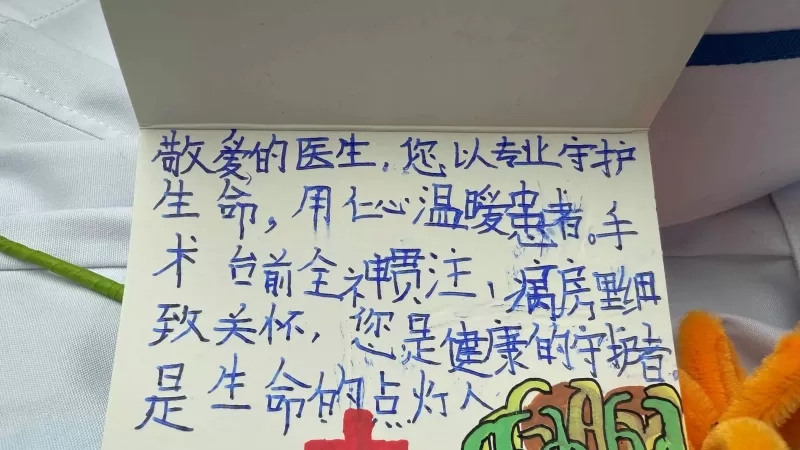 敬爱的医生，您以专业守护
生命，用仁心温暖患者。手
术台前全神贯注，病房里细
致关怀，您是健康的守护者，
是生命的点灯人